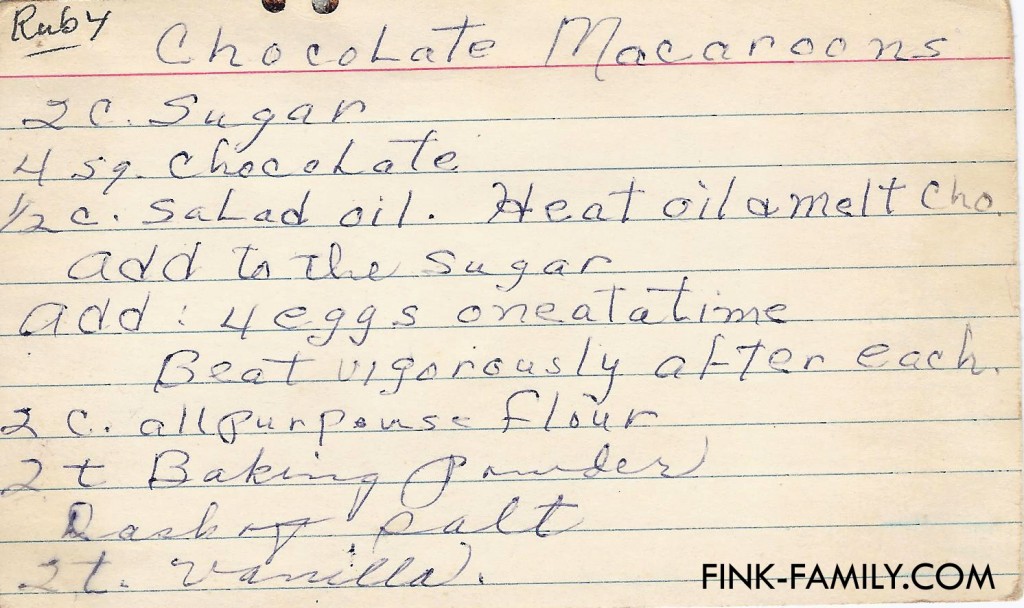 Ruby
Chocolate Macaroons
2 c. Sugar
4 sq. chocolate
1/2 c. salad oil. Heat oil & melt cho.
add to the sugar
add: 4 eggs one at a time
Beat vigorously after each.
2 c. all purpouse flour
2 t Baking Powder
Dash of salt
2 t. vanilla.
FINK-FAMILY.COM